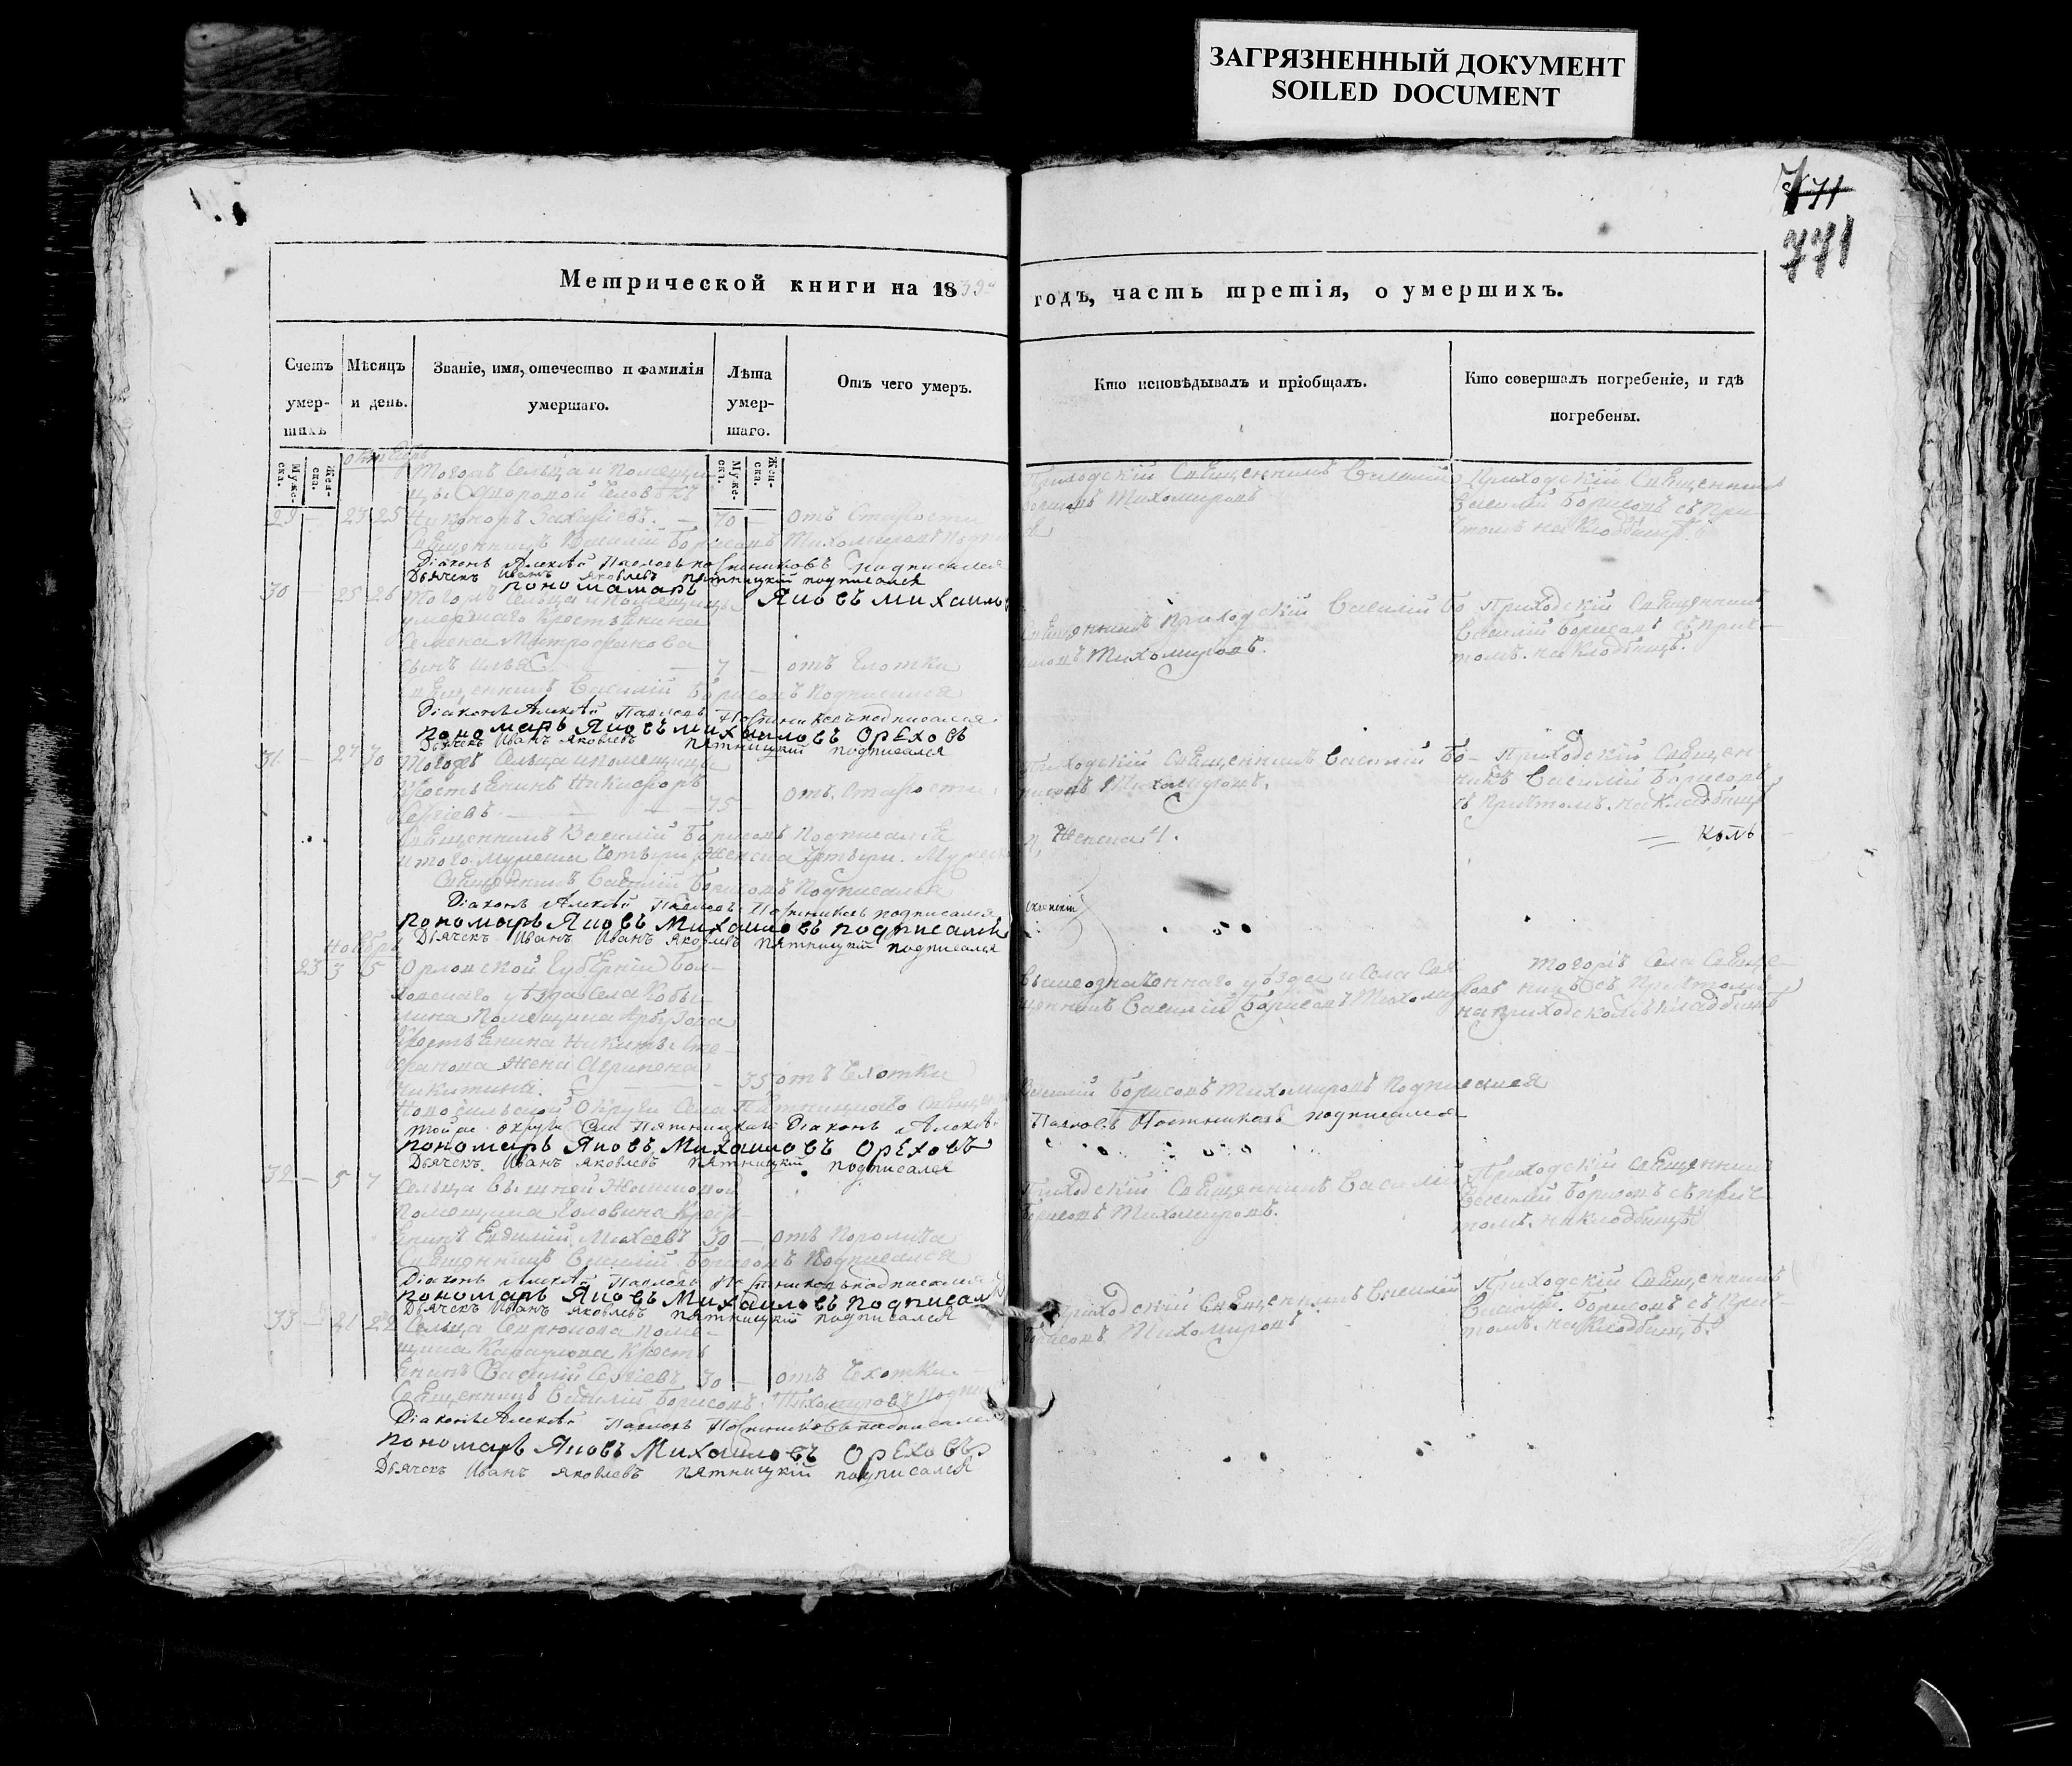 ЗАГРЯЗНЕННЫЙ ДОКУМЕНТ
SOILED DOCUMENT
771
Метрической книги на 1839 годъ, часть третія, о умершихъ.
Счетъ умер-шихъ
Мѣсяцъ и день.
Званіе, имя, отечество и фамилія умершаго.
Лѣта умер-шаго.
Отъ чего умеръ.
Кто исповѣдывалъ и пріобщалъ.
Кто совершалъ погребеніе, и гдѣ погребены.
Муже-ска.
Жен-ска.
Муже-ска.
Жен-ска.
октябрь
Тогожъ Сельца и помещи-
29 — 23 25 Никоноръ Захаріевъ. — 70 — отъ Старости
Приходскій Священникъ Василій Борисовъ Тихомировъ
Приходскій Священникъ
Василій Борисовъ съ При-
чтомъ на кладбищѣ.
Священникъ Василій Борисовъ Тихомировъ
Діаконъ Алексѣй Павловъ Постниковъ подписался
Дьячекъ Иванъ Яковлевъ Пятницкій подписался
пономарь Яковъ Михаиловъ
30 — 25 26 Тогожъ Сельца и помещицы
умершаго Крестьянина
Семена Митрофанова
сынъ Илья — 7 — отъ чахотки
Священникъ Приходскій Василій Бо-
рисовъ Тихомировъ.
Приходскій Священникъ
Василій Борисовъ съ прич-
томъ. на кладбищѣ.
Священникъ Василій Борисовъ подписался
Діаконъ Алексѣй Павловъ Постниковъ подписался
пономарь Яковъ Михаиловъ Ореховъ
Дьячекъ Иванъ Яковлевъ Пятницкій подписался
31 — 27 30 Тогожъ Сельца и помещицы
Крестьянинъ Никифоръ
Сергіевъ — 75 — отъ. Старости
Приходскій Священникъ Василій Бо-
рисовъ Тихомировъ.
Приходскій Священ
никъ Василій Борисовъ
съ причтомъ. на кладбищѣ
Священникъ Василій Борисовъ подписался
итого. мужеска четыри, женска четыри. Мужеска
4, Женска 4.
Священникъ Василій Борисовъ Подписался
Діаконъ Алексѣй Павловъ Постниковъ подписался
пономарь Яковъ Михаиловъ подписался
Дьячекъ Иванъ Иванъ Яковлевъ Пятницкій подписался
Ноябрь
23 3 5 Орловской Губерніи Бол-
ховскаго уѣзда села Кобы-
лина Помещика Арбузова
Крестьянина Никиты Сте-
фанова жена Агрипена
Никитина. — 35 отъ чахотки
вышеозначеннаго уѣзда и Села Свя
щенникъ Василій Борисовъ Тихомировъ
тогожъ Села Священ-
никъ съ Причтомъ
на приходскомъ кладбищѣ
Новосильской Округи Села Пятницкаго Священникъ
Василій Борисовъ Тихомировъ подписался
той же округи Села Пятницкаго Діаконъ Алексѣй Павловъ Постниковъ подписался
пономарь Яковъ Михаиловъ Ореховъ
Дьячекъ Иванъ Яковлевъ Пятницкій подписался
32 — 5 7 Сельца вышней
помещика Головина Крест-
янинъ Евдокій Михеевъ 30 —
Приходскій Священникъ Василій
Борисовъ Тихомировъ.
Приходскій Священникъ
Василій Борисовъ съ прич-
томъ. на кладбищѣ
Священникъ Василій Борисовъ Подписался
Діаконъ Алексѣй Павловъ Постниковъ подписался
пономарь Яковъ Михаиловъ подписался
Дьячекъ Иванъ Яковлевъ Пятницкій подписался
33 — 21 22 Сельца поме-
щика Крестъ
янинъ Василій Сергіевъ 30 — отъ чахотки.
Приходскій Священникъ Василій
Борисовъ Тихомировъ
Приходскій Священникъ
Василій. Борисовъ съ прич-
томъ. на кладбищѣ.
Священникъ Василій Борисовъ Тихомировъ
Діаконъ Алексѣй Павловъ Постниковъ подписался
пономарь Яковъ Михаиловъ Ореховъ
Дьячекъ Иванъ Яковлевъ Пятницкій подписался